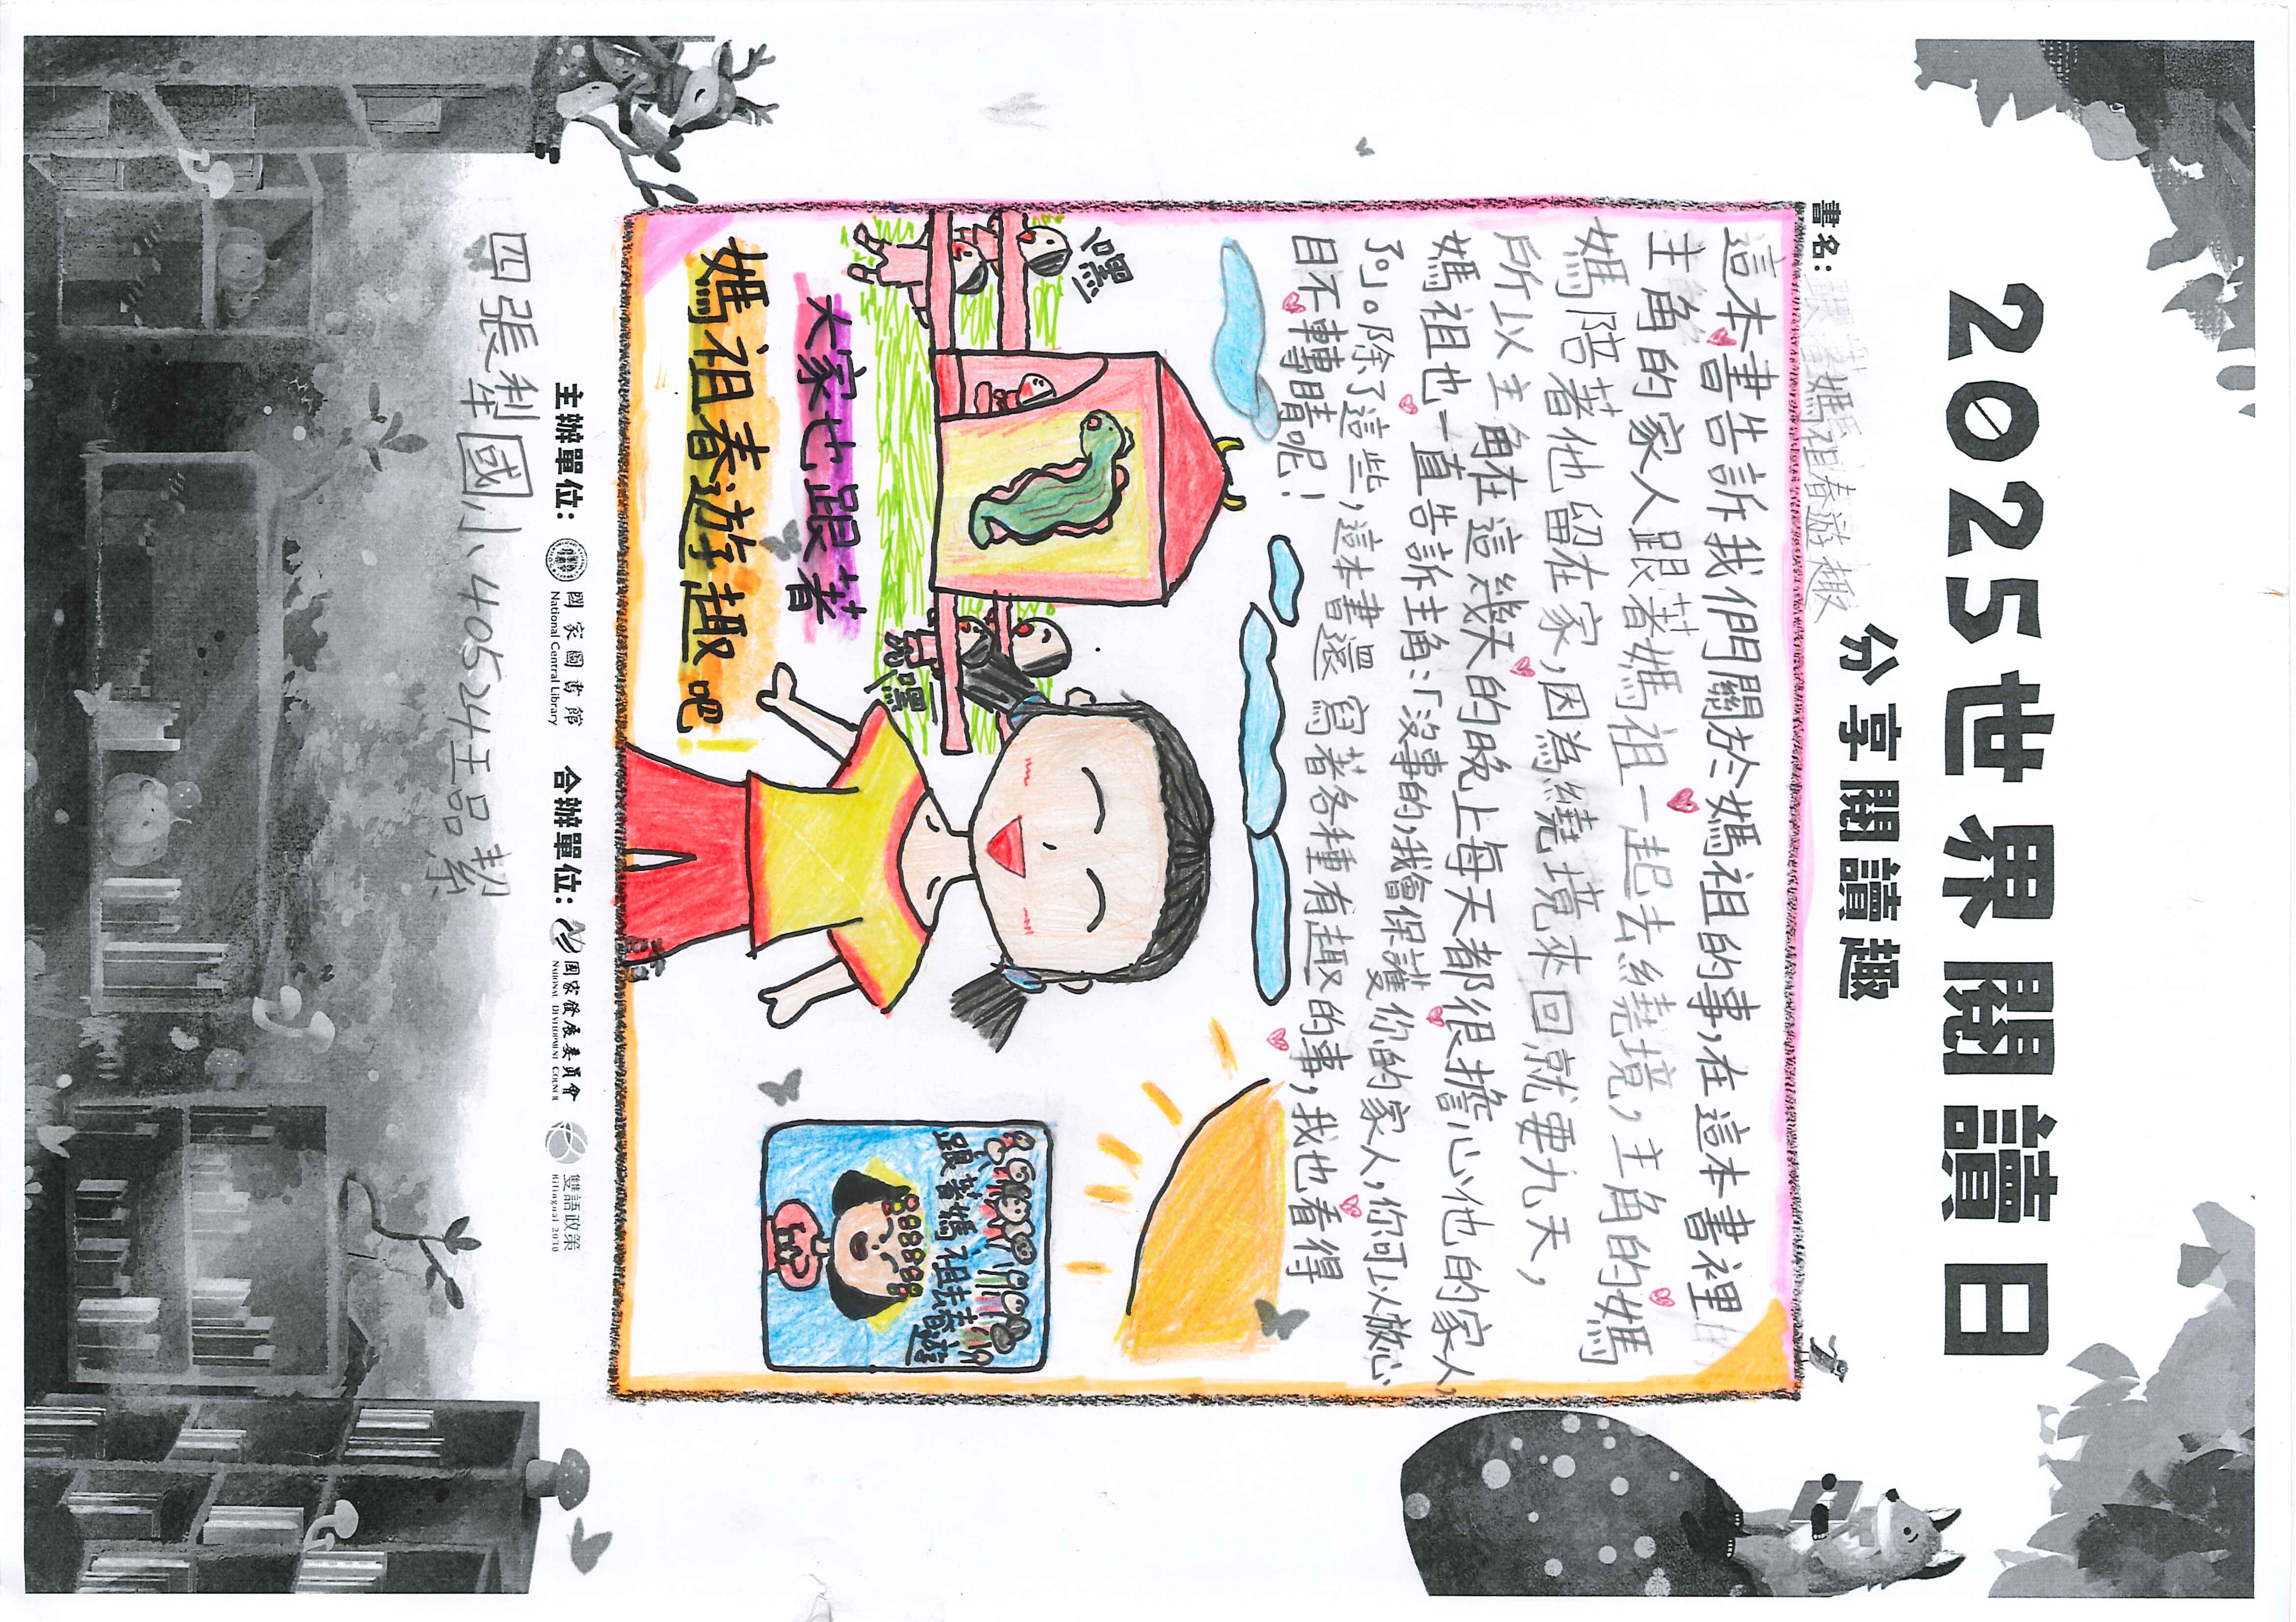 2025世界閱讀日
分享閱讀趣
書名：跟著媽祖春遊趣
這本書告訴我們關於媽祖的事，在這本書裡的
主角的家人跟著媽祖一起去繞境，主角的媽
媽陪著他留在家，因為繞境來回就要九天，
所以主角在這幾天的晚上每天都很擔心他的家人，
媽祖也一直告訴主角：「沒事的，我會保護你的家人，你可以放心
了」。除了這些，這本書還寫著各種有趣的事，我也看得
目不轉睛呢！
嘿
嘿
跟著媽祖去春遊
大家也跟著
媽祖春遊趣吧！
主辦單位：國家圖書館
National Central Library
合辦單位：國家發展委員會
National Development Council
雙語政策
Bilingual 2030
四張犁國小 40524王品絜